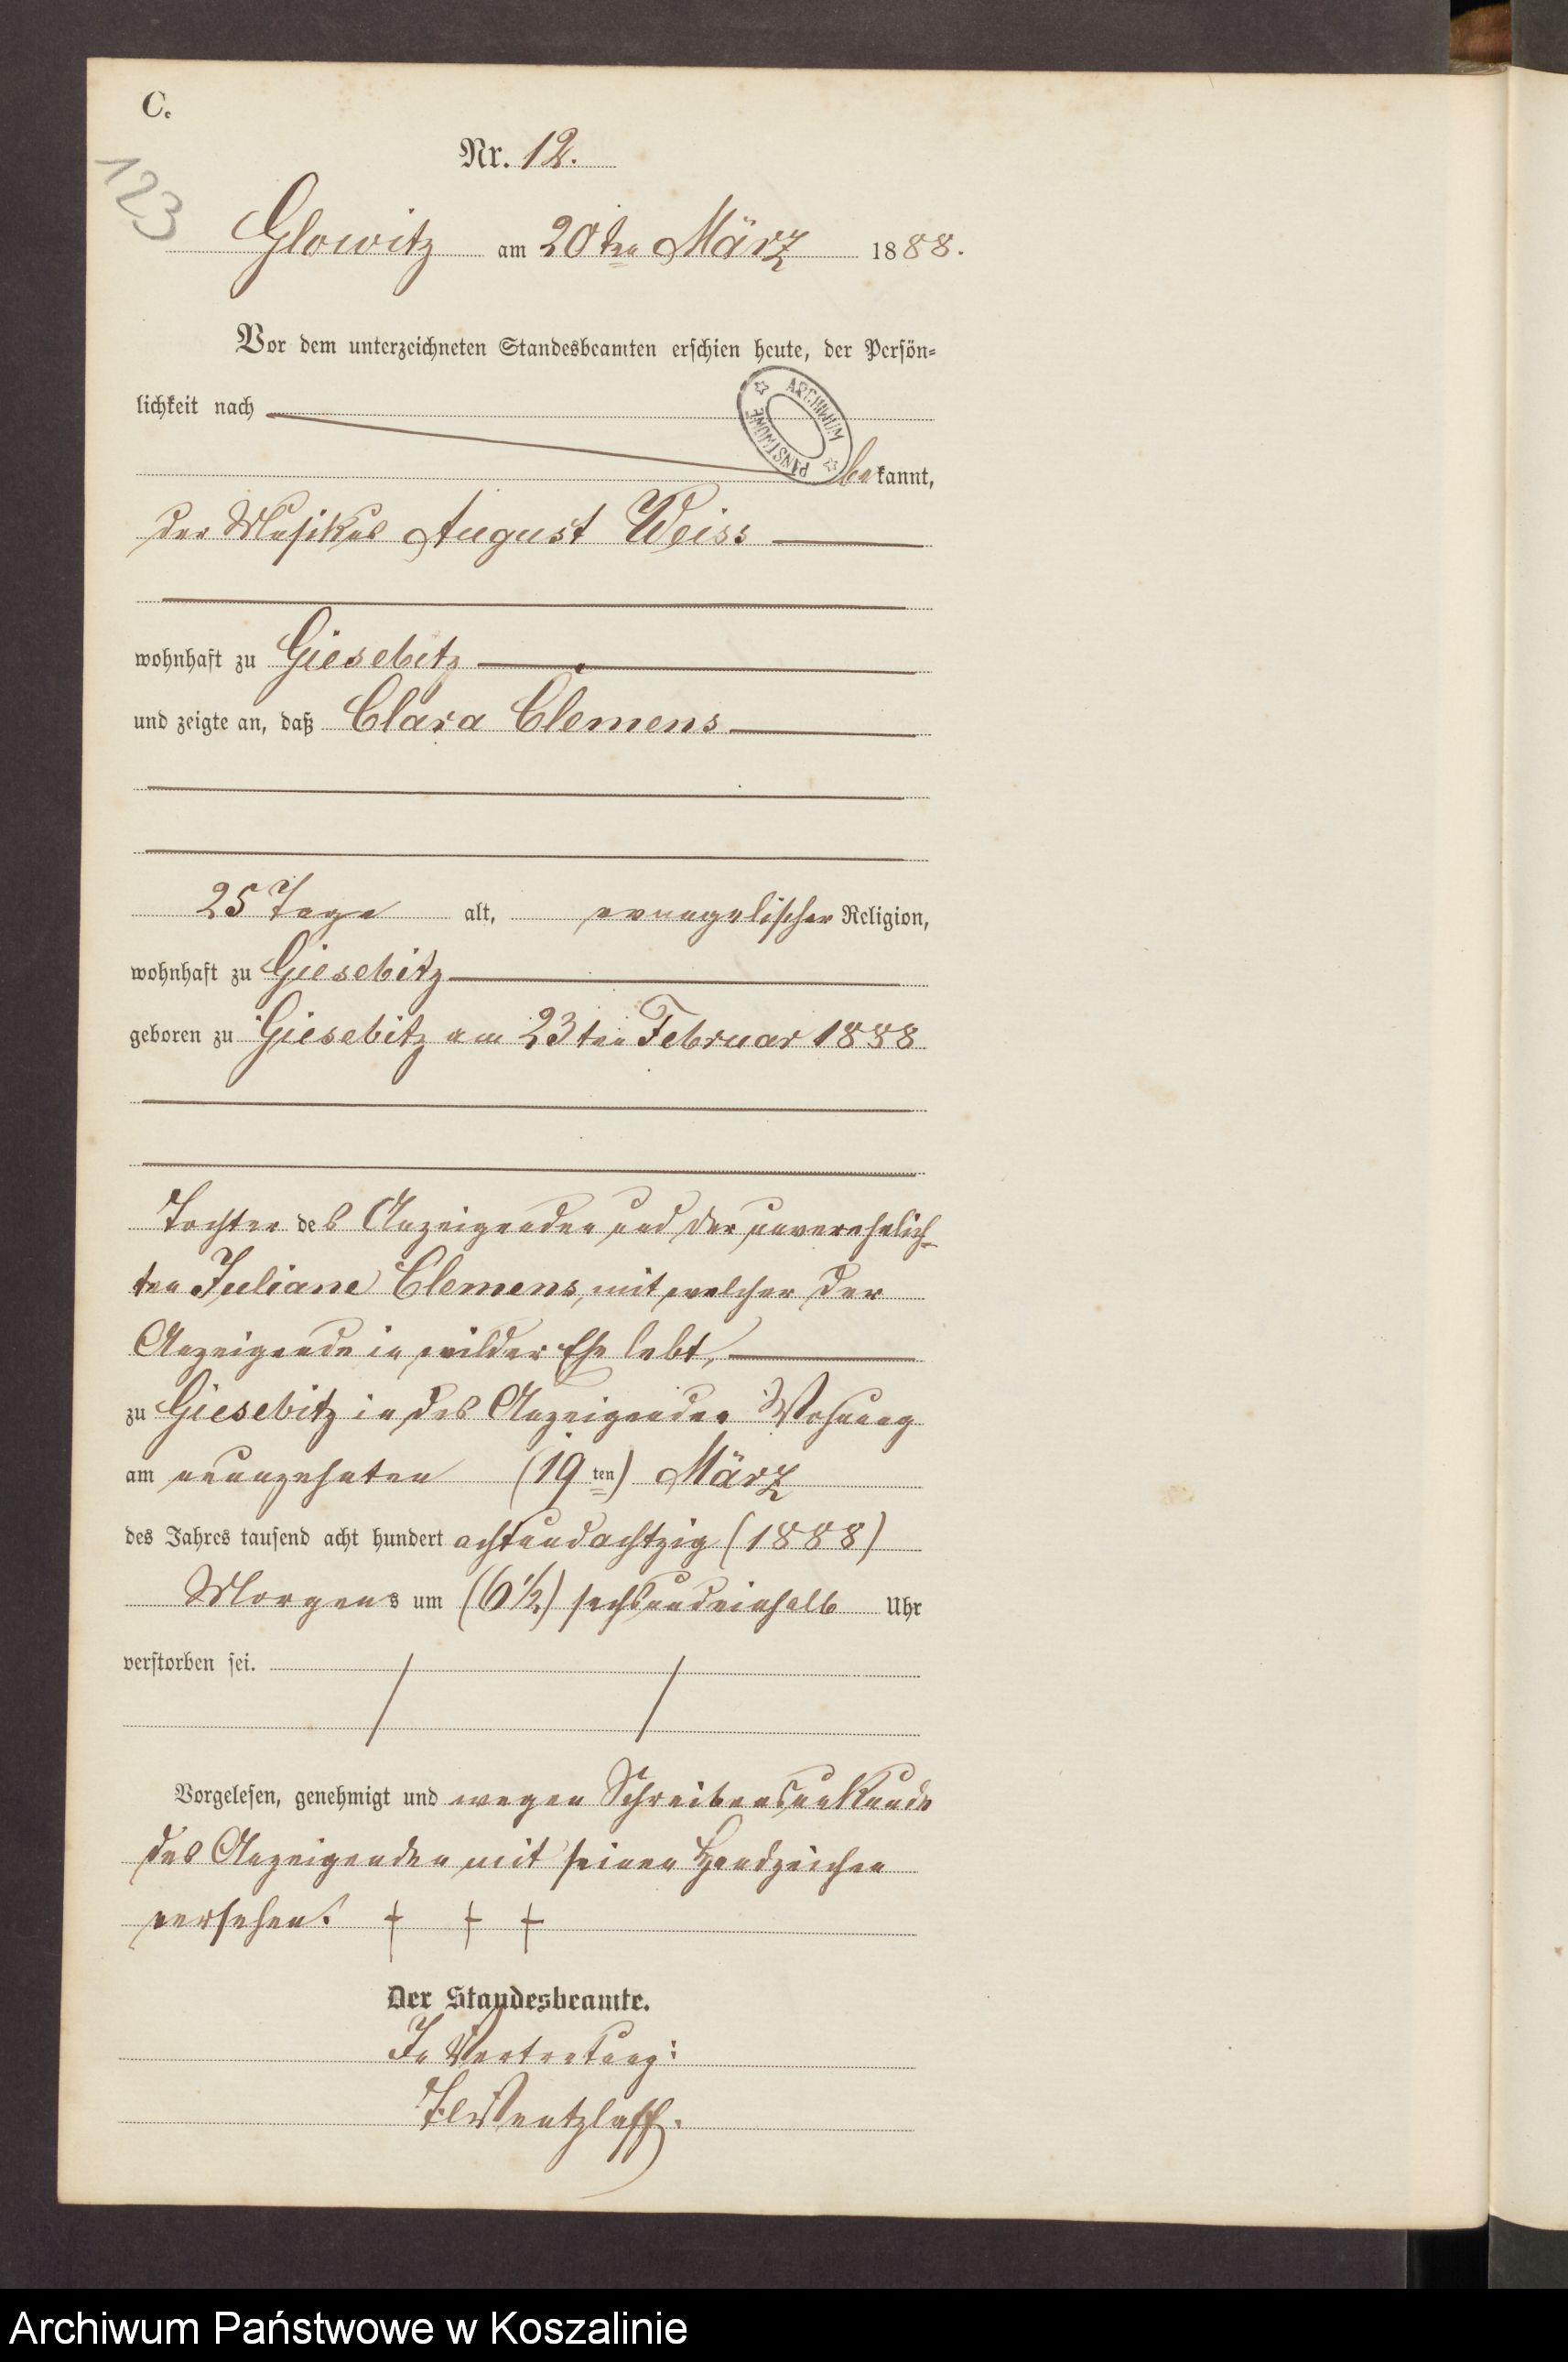 C.
Nr. 12.
123
Glowitz am 20ten März 1888.
Vor dem unterzeichneten Standesbeamten erschien heute, der Persön-
lichkeit nach
ARCHIWUM PAŃSTWOWE
bekannt,
der Musikus August Weiss
wohnhaft zu Giesebitz
und zeigte an, daß Clara Clemens
25 Tage alt, evangelischer Religion,
wohnhaft zu Giesebitz
geboren zu Giesebitz am 23ten Februar 1888
Tochter des Anzeigenden und der unverehelich-
ten Juliane Clemens, mit welcher der
Anzeigende in wilder Ehe lebt,
zu Giesebitz in des Anzeigenden Wohnung
am neunzehnten (19ten) März
des Jahres tausend acht hundert achtundachtzig (1888)
Morgens um (6½) sechsundeinhalb Uhr
verstorben sei.
Vorgelesen, genehmigt und wegen Schreibensunkunde
des Anzeigenden mit seinen Handzeichen
versehen. + + +
Der Standesbeamte.
In Vertretung:
Wentzlaff.
Archiwum Państwowe w Koszalinie